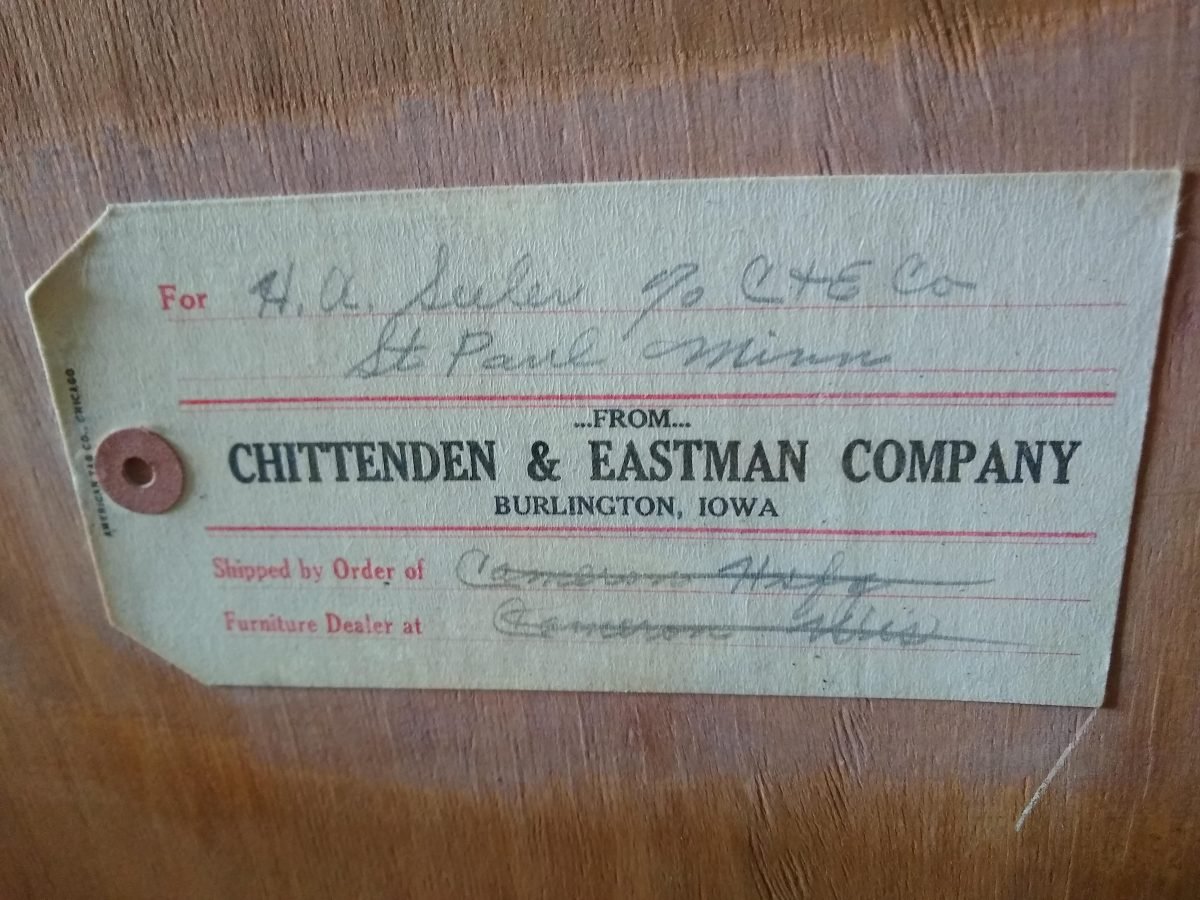 For H. A. Seeler c/o C + E Co
St Paul Minn
...FROM...
CHITTENDEN & EASTMAN COMPANY
BURLINGTON, IOWA
Shipped by Order of Cameron
Furniture Dealer at Cameron Wis
AMERICAN TAG CO., CHICAGO